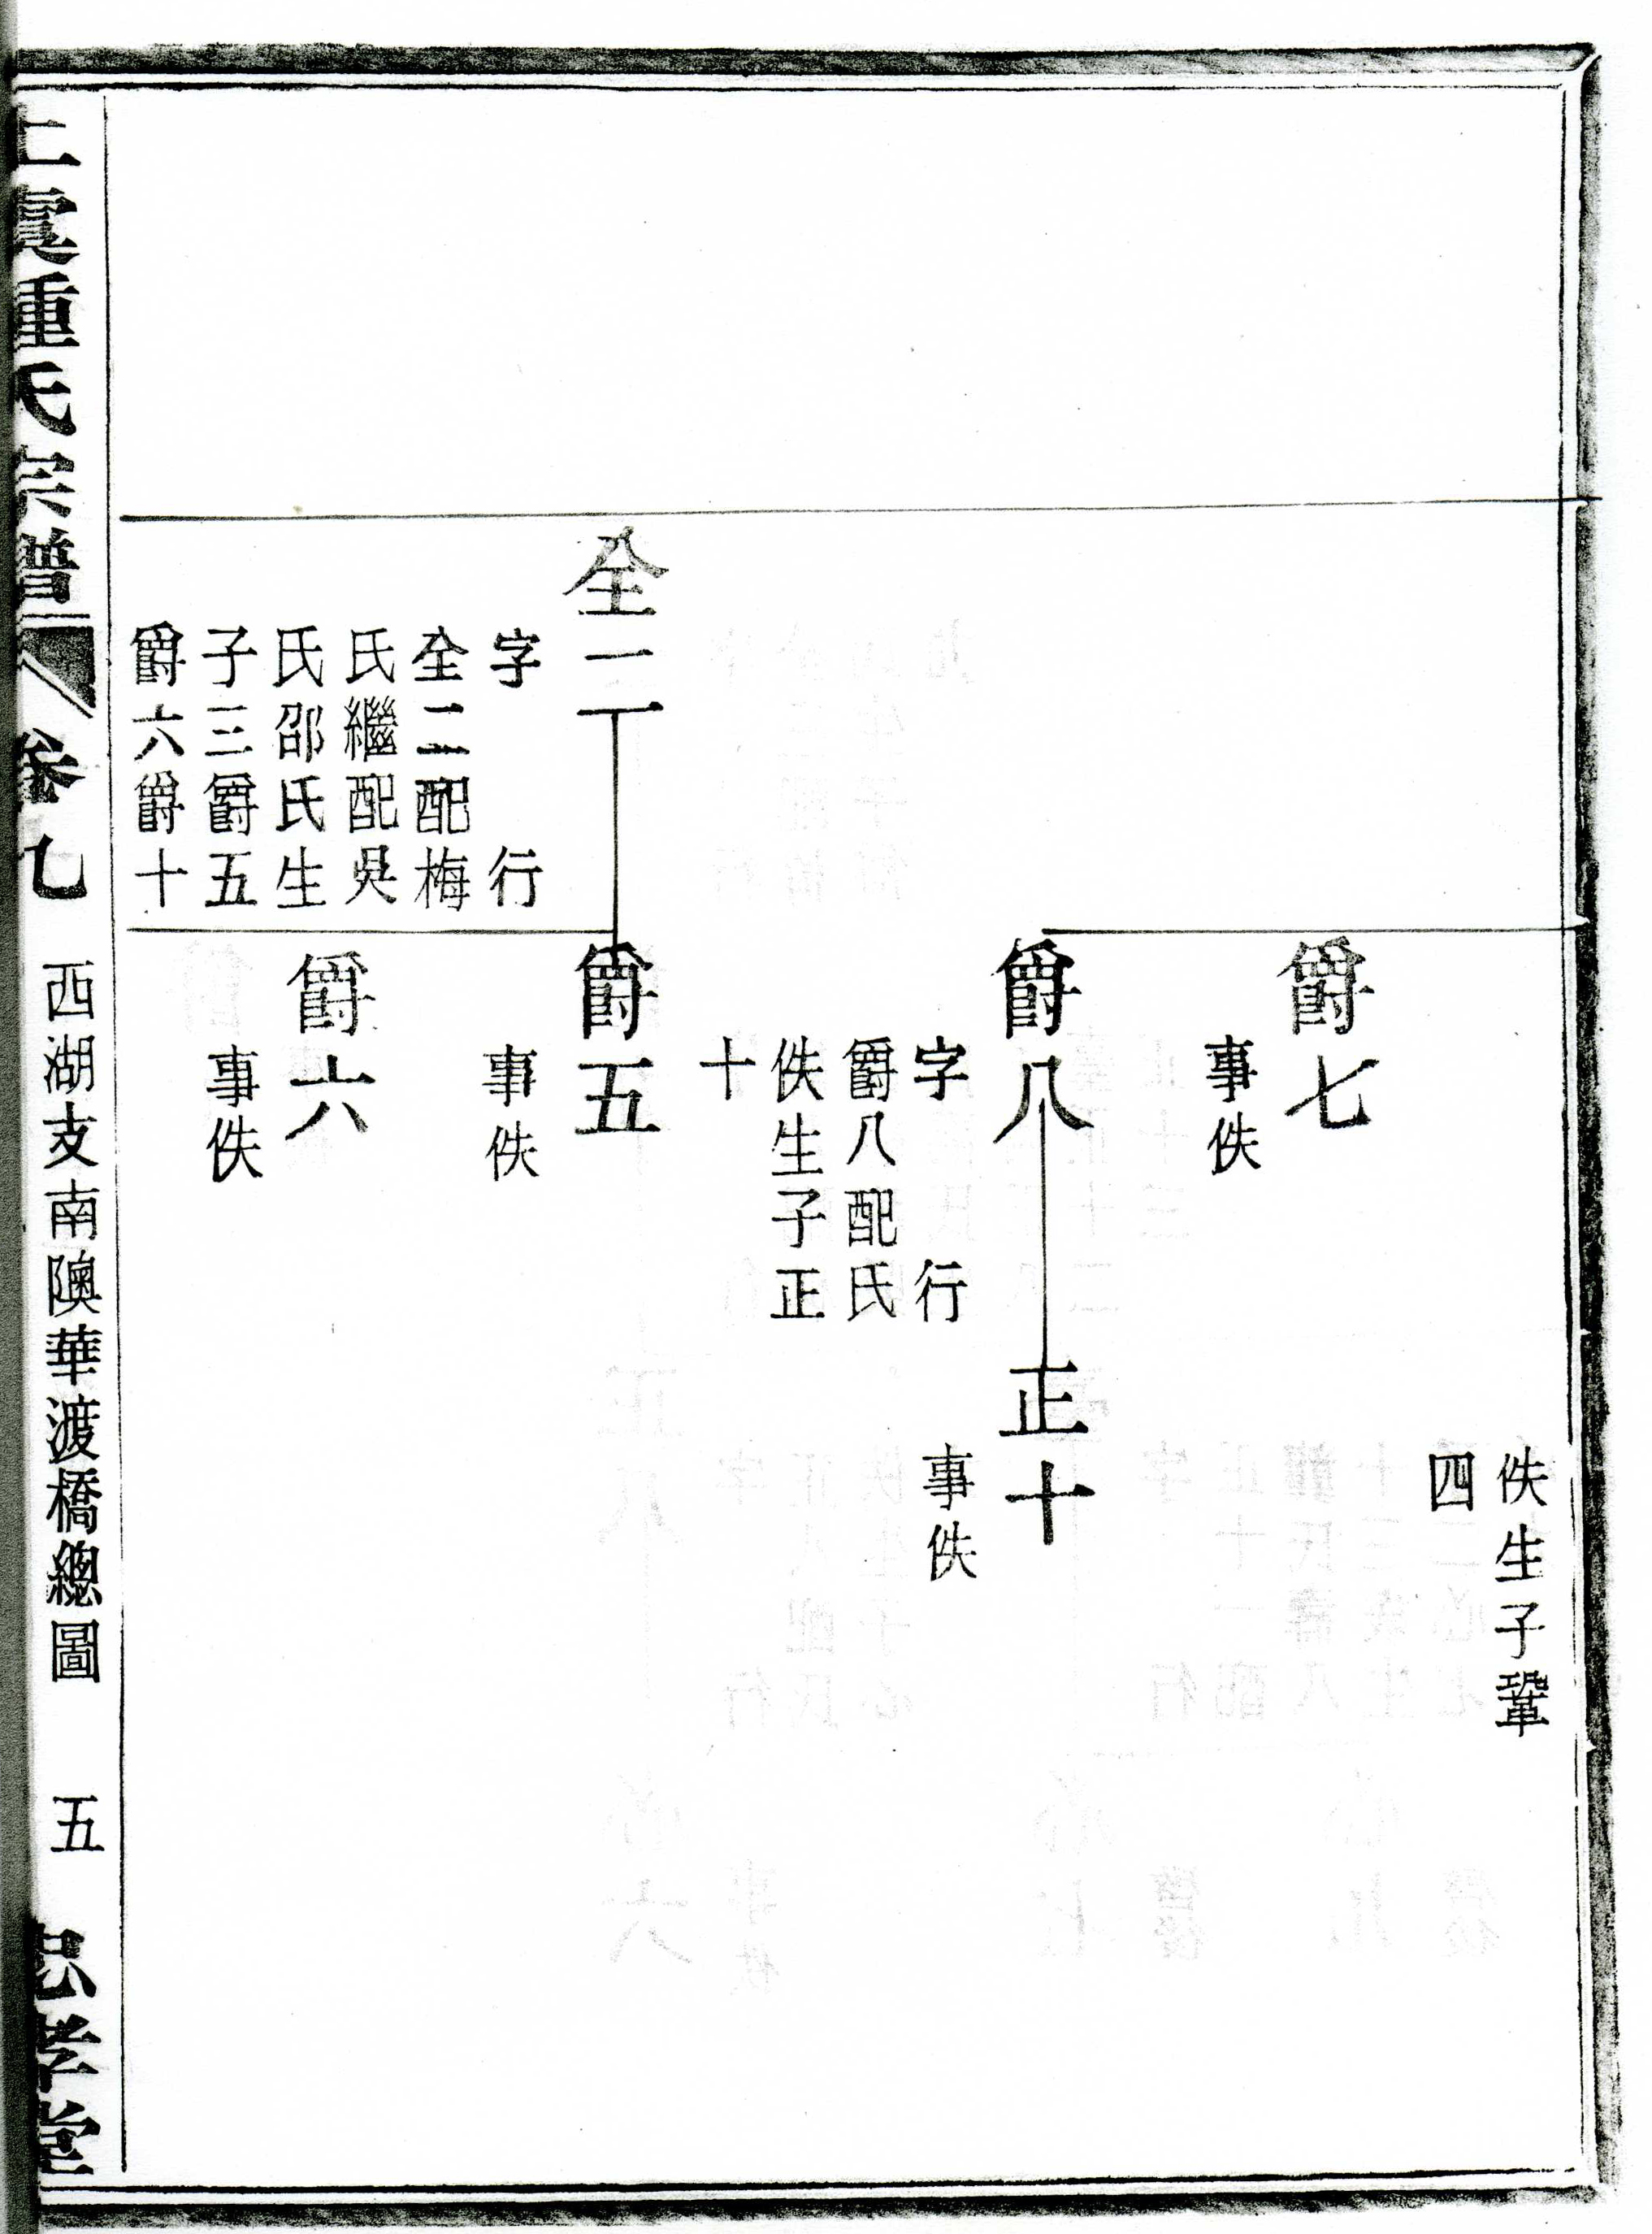 佚生子鞏
四
爵七
事佚
爵八
字 行
爵八配氏
佚生子正
十
正十
事佚
全二
字 行
全二配梅
氏繼配吳
氏邵氏生
子三爵五
爵六爵十
爵五
事佚
爵六
事佚
上虞鍾氏宗譜
卷九
西湖支南隩華渡橋總圖
五
忠孝堂